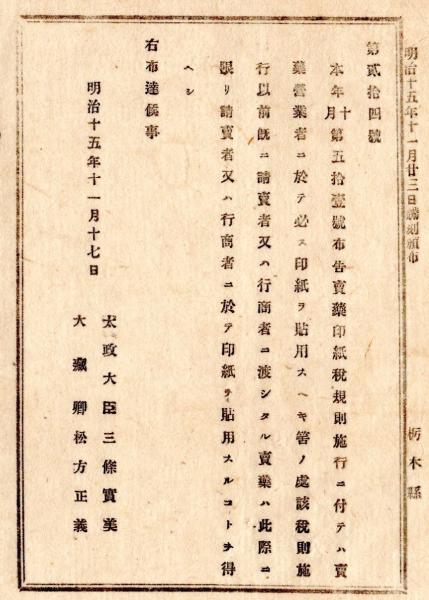 明治十五年十一月廿三日謄刻頒布 栃木縣
第貳拾四號
本年十月第五拾壹號布告賣藥印紙税規則施行ニ付テハ賣
藥營業者ニ於テ必ス印紙ヲ貼用スヘキ筈ノ處該税則施
行以前既ニ請賣者又ハ行商者ニ渡シタル賣藥ハ此際ニ
限リ請賣者又ハ行商者ニ於テ印紙ヲ貼用スルコトヲ得
ヘシ
右布達候事
明治十五年十一月十七日
太政大臣三條實美
大藏卿松方正義